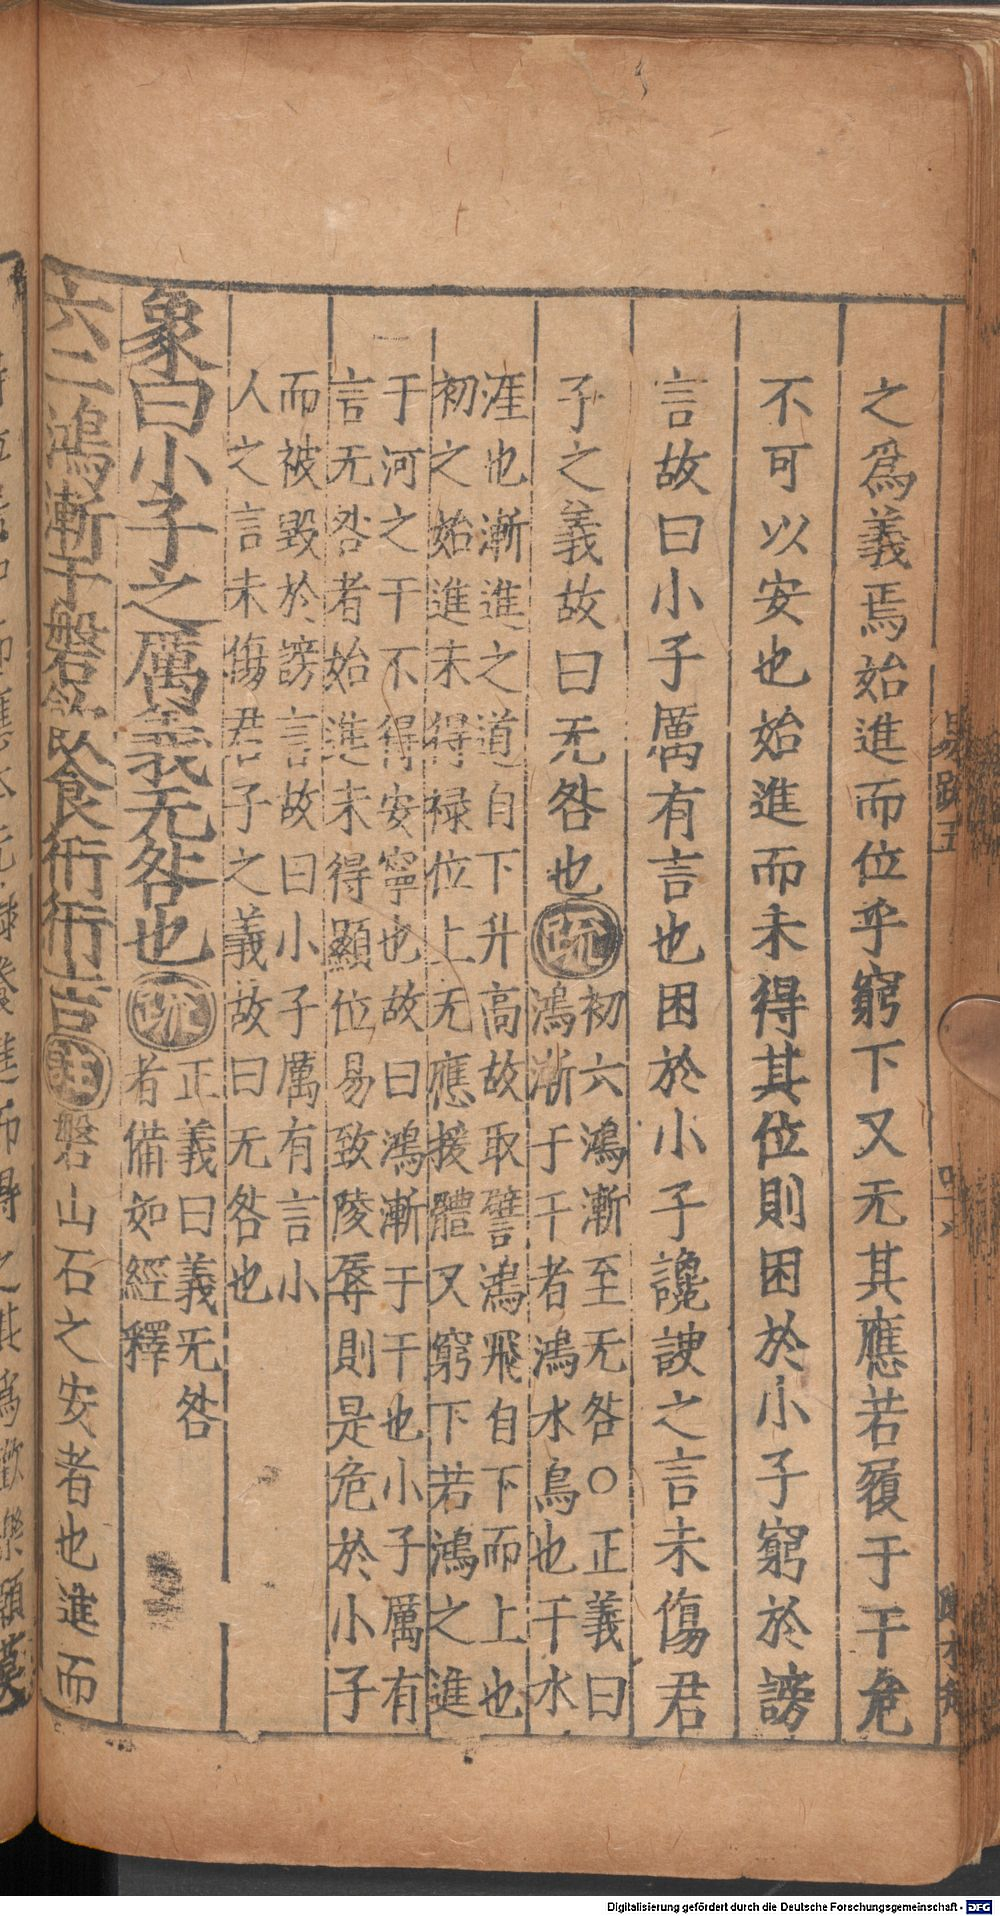 之爲義焉始進而位乎窮下又无其應若履于干危
不可以安也始進而未得其位則困於小子窮於謗
言故曰小子厲有言也困於小子讒諛之言未傷君
子之義故曰无咎也疏
初六鴻漸至无咎○正義曰
鴻漸于干者鴻水鳥也干水
涯也漸進之道自下升高故取譬鴻飛自下而上也
初之始進未得禄位上无應援體又窮下若鴻之進
于河之干不得安寧也故曰鴻漸于干也小子厲有
言无咎者始進未得顯位易致陵辱則是危於小子
而被毀於謗言故曰小子厲有言小
人之言未傷君子之義故曰无咎也
象曰小子之厲義无咎也疏
正義曰義无咎
者備如經釋
六二鴻漸于磐飲食衎衎吉註磐山石之安者也進而
易疏五
Digitalisierung gefördert durch die Deutsche Forschungsgemeinschaft - DFG